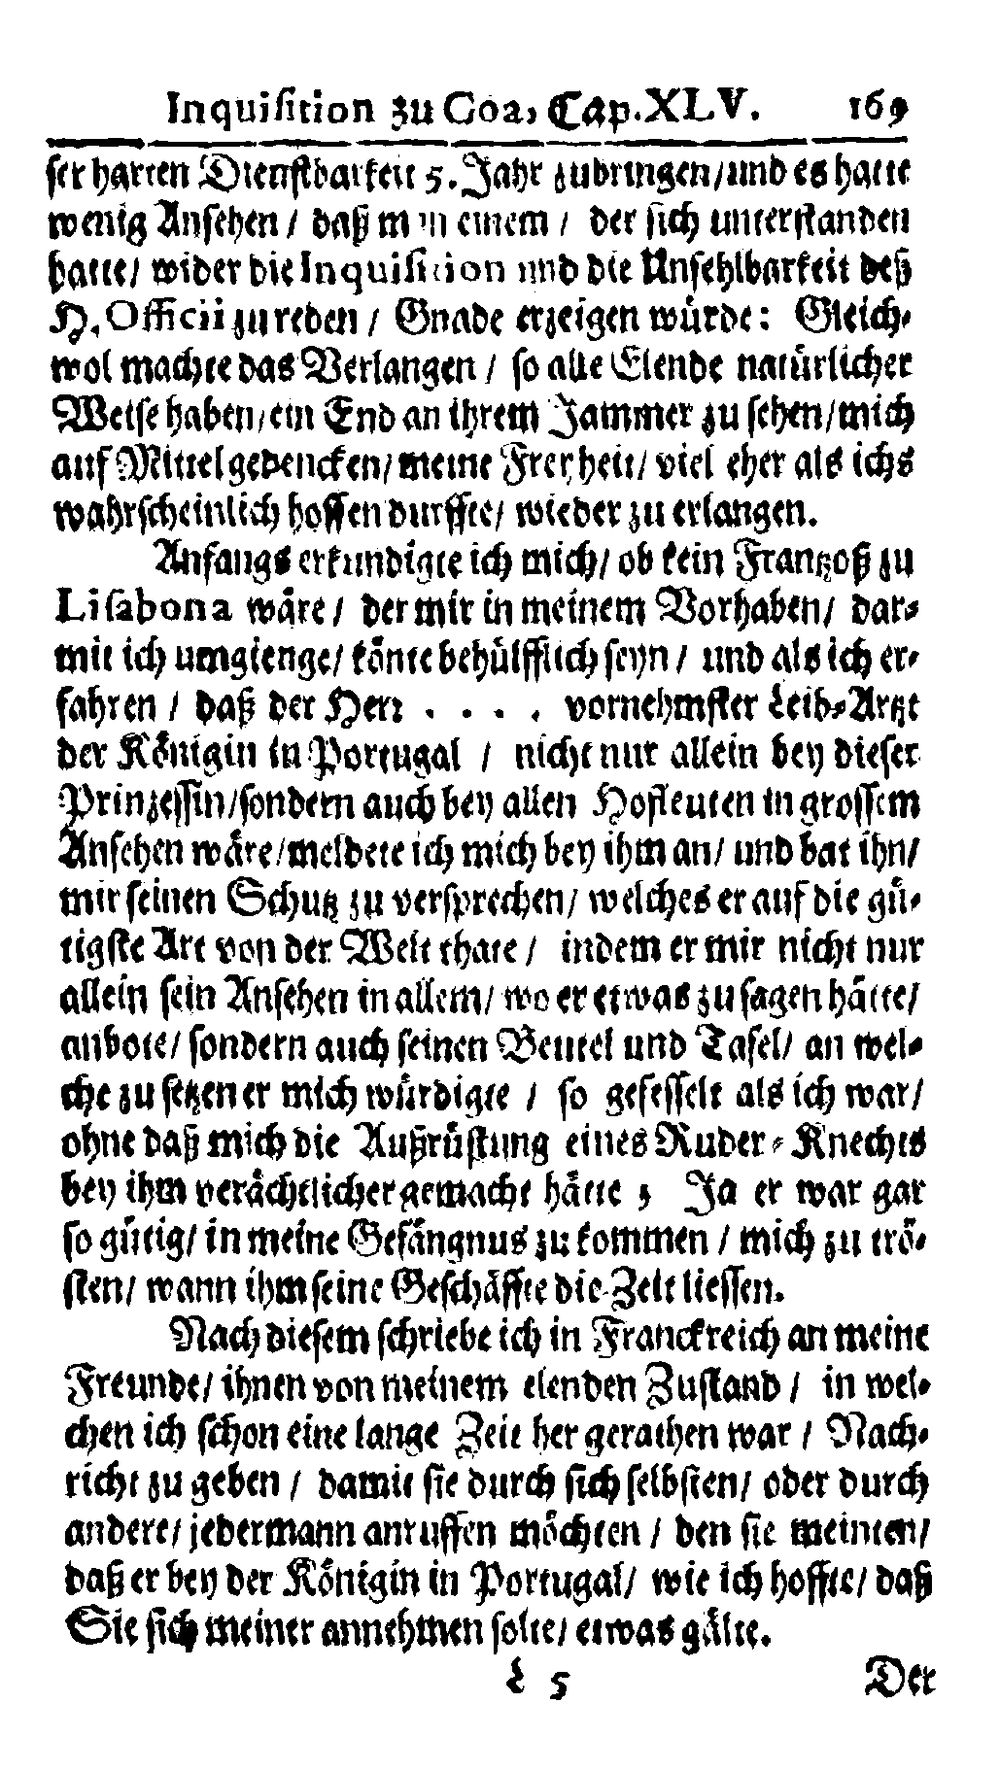 Inquisition zu Goa, Cap. XLV. 169
ser harten Dienstbarkeit 5. Jahr zubringen/und es hatte
wenig Ansehen / daß man einem / der sich unterstanden
hatte/ wider die Inquisition und die Unfehlbarkeit deß
H. Officii zu reden / Gnade erzeigen würde: Gleich-
wol machte das Verlangen / so alle Elende natürlicher
Weise haben/ein End an ihrem Jammer zu sehen/mich
auf Mittel gedencken/meine Freyheit/ viel eher als ichs
wahrscheinlich hoffen durffte/ wieder zu erlangen.
Anfangs erkundigte ich mich/ ob kein Frantzoß zu
Lisabona wäre/ der mir in meinem Vorhaben/ dar-
mit ich umgienge/ könte behülfflich seyn / und als ich er-
fahren / daß der Herr . . . . vornehmster Leib-Artzt
der Königin in Portugal / nicht nur allein bey dieser
Prinzessin/sondern auch bey allen Hofleuten in grossem
Ansehen wäre/meldete ich mich bey ihm an/ und bat ihn/
mir seinen Schutz zu versprechen/ welches er auf die gü-
tigste Art von der Welt thate / indem er mir nicht nur
allein sein Ansehen in allem/ wo er etwas zu sagen hätte/
anbote/ sondern auch seinen Beutel und Tafel/ an wel-
che zu setzen er mich würdigte / so gefesselt als ich war/
ohne daß mich die Außrüstung eines Ruder-Knechts
bey ihm verächtlicher gemacht hätte; Ja er war gar
so gütig/ in meine Gefängnus zu kommen / mich zu trö-
sten/ wann ihm seine Geschäffte die Zeit liessen.
Nach diesem schriebe ich in Franckreich an meine
Freunde/ ihnen von meinem elenden Zustand / in wel-
chen ich schon eine lange Zeit her gerathen war / Nach-
richt zu geben / damit sie durch sich selbsten/ oder durch
andere/ jedermann anruffen möchten / den sie meinten/
daß er bey der Königin in Portugal/ wie ich hoffte/ daß
Sie sich meiner annehmen solte/ etwas gälte.
L 5 Der